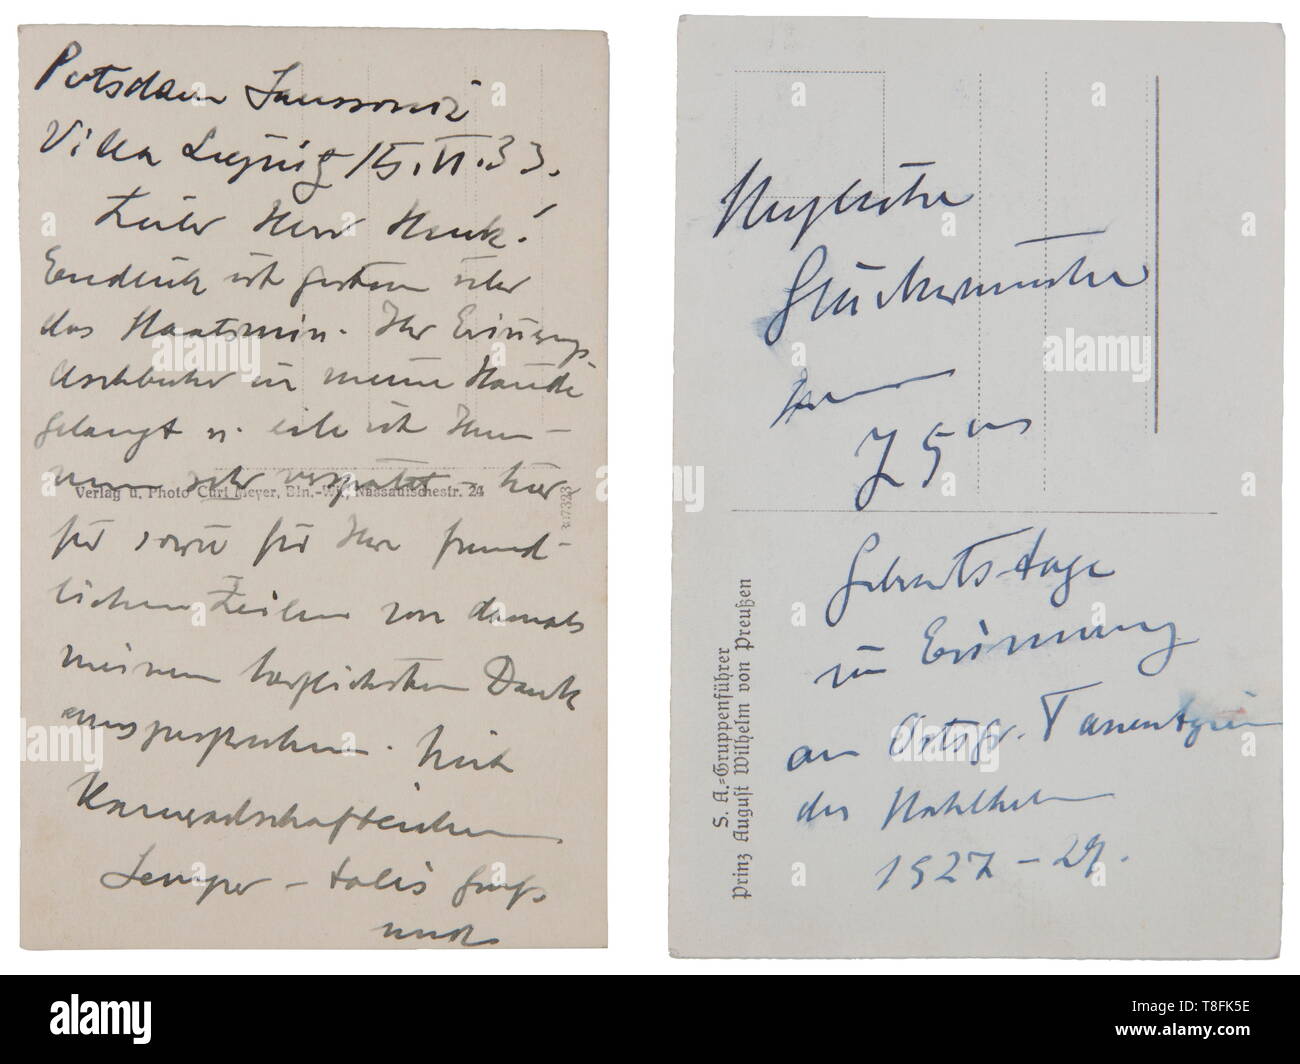 Potsdam Sanssouci
Villa Liegnitz 15.VI.33.
Lieber Herr Henk!
Endlich ist gestern über
das Staatsmin. Ihr Erinnerungs-
in meine Hände
gelangt u. eile ich Ihnen –
nun sehr verspätet – hier-
für sowie für Ihre freund-
lichen Zeilen von damals
meinen herzlichsten Dank
auszusprechen. Mit
Kameradschaftlichem
Semper – talis Gruß
Verlag u. Photo Curt Meyer, Bln.-W., Nassauischestr. 24
7323
Herzliche
Glückwünsche
zum
75ten
Geburtstage
in Erinnerung
an Ortsgr. Tannentzien
des Stahlhelm
1927 – 29.
S. A.-Gruppenführer
Prinz August Wilhelm von Preußen
alamy
Image ID: T8FK5E
www.alamy.com